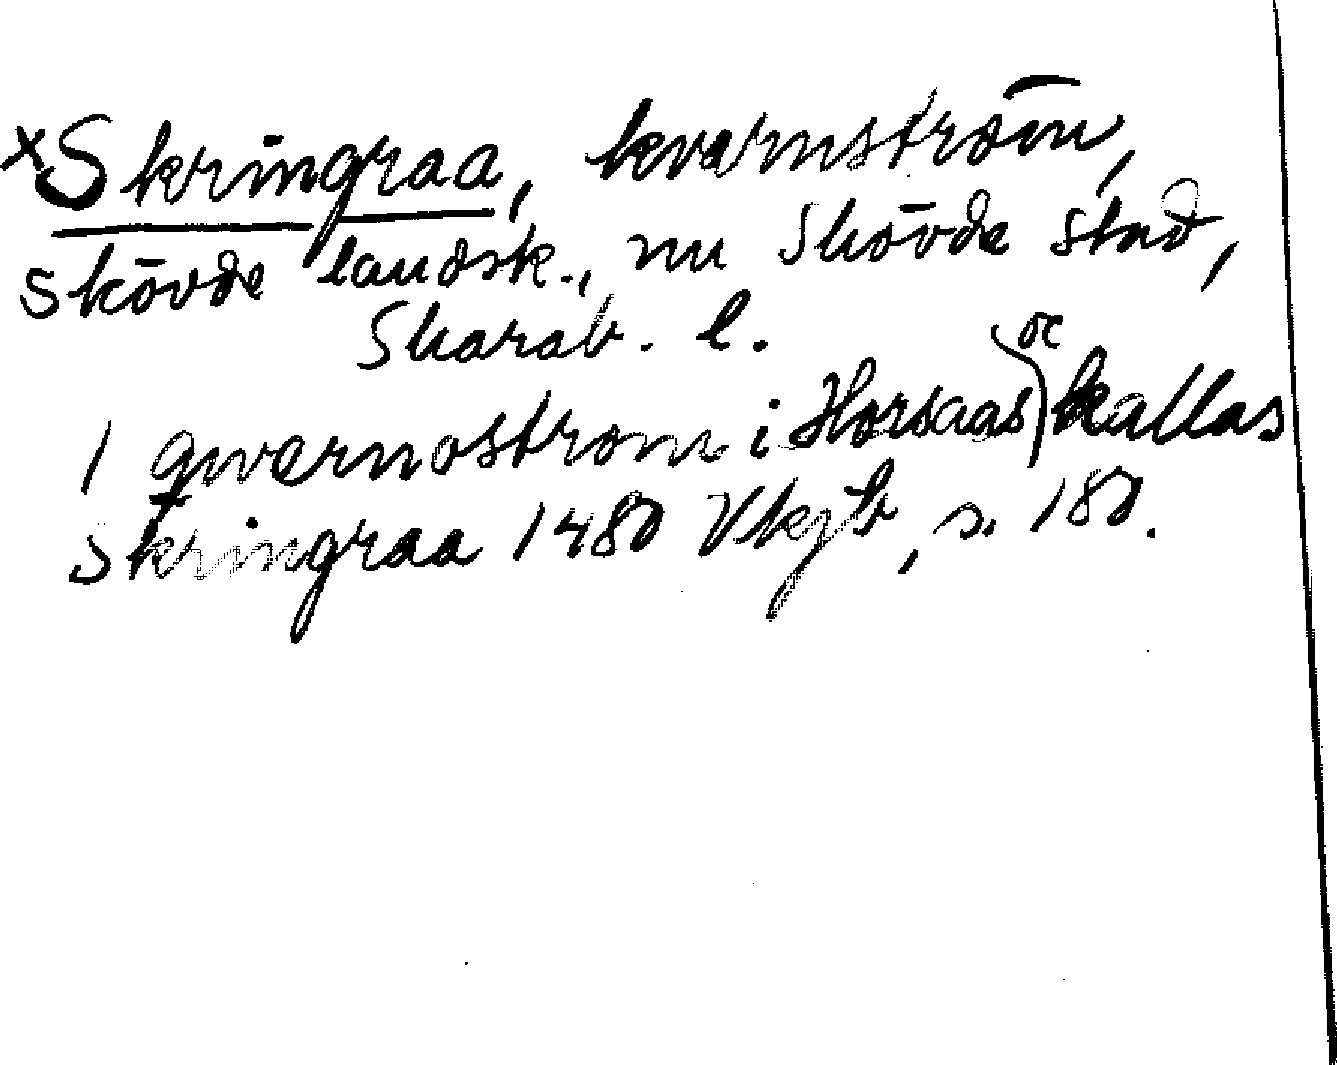 ×Skringraa, kvarnström,
Skövde landsk., nu Skövde stad,
Skarab. l.
1 qwernostrom i Horsaas oc kallas
Skringraa 1480 Vkjb, s. 180.